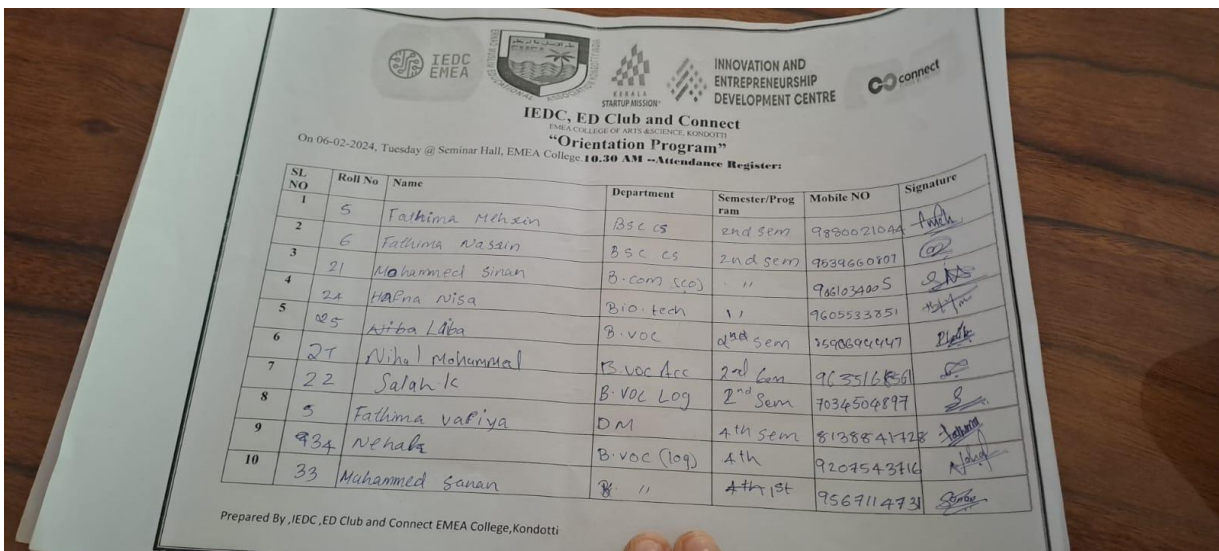 IEDC
EMEA
KERALA
STARTUP MISSION
INNOVATION AND
ENTREPRENEURSHIP
DEVELOPMENT CENTRE
connect
IEDC, ED Club and Connect
EMEA COLLEGE OF ARTS &SCIENCE, KONDOTTI
“Orientation Program”
On 06-02-2024, Tuesday @ Seminar Hall, EMEA College.10.30 AM --Attendance Register:
SL NO Roll No Name Department Semester/Program Mobile NO Signature
1 5 Fathima Mehsin BSc cs 2nd sem 9880021044
2 6 Fathima Nassin BSC cs 2nd sem 9539660807
3 21 Mohammed Sinan B.com (co) "
4 24 Hafna Nisa Bio.tech " 9605533851
5 25 Laiba B.voc 2nd sem
6 27 Nihal Mohammed B.voc Acc 2nd
7 22 Salah k B.voc Log 2nd sem 7034504897
8 5 Fathima vafiya DM 4th sem 8138841728 Fathima
9 Nehala B.voc (log) 4th 9207543716
10 33 Muhammed Sanan " 1st 9567114731
Prepared By ,IEDC ,ED Club and Connect EMEA College,Kondotti